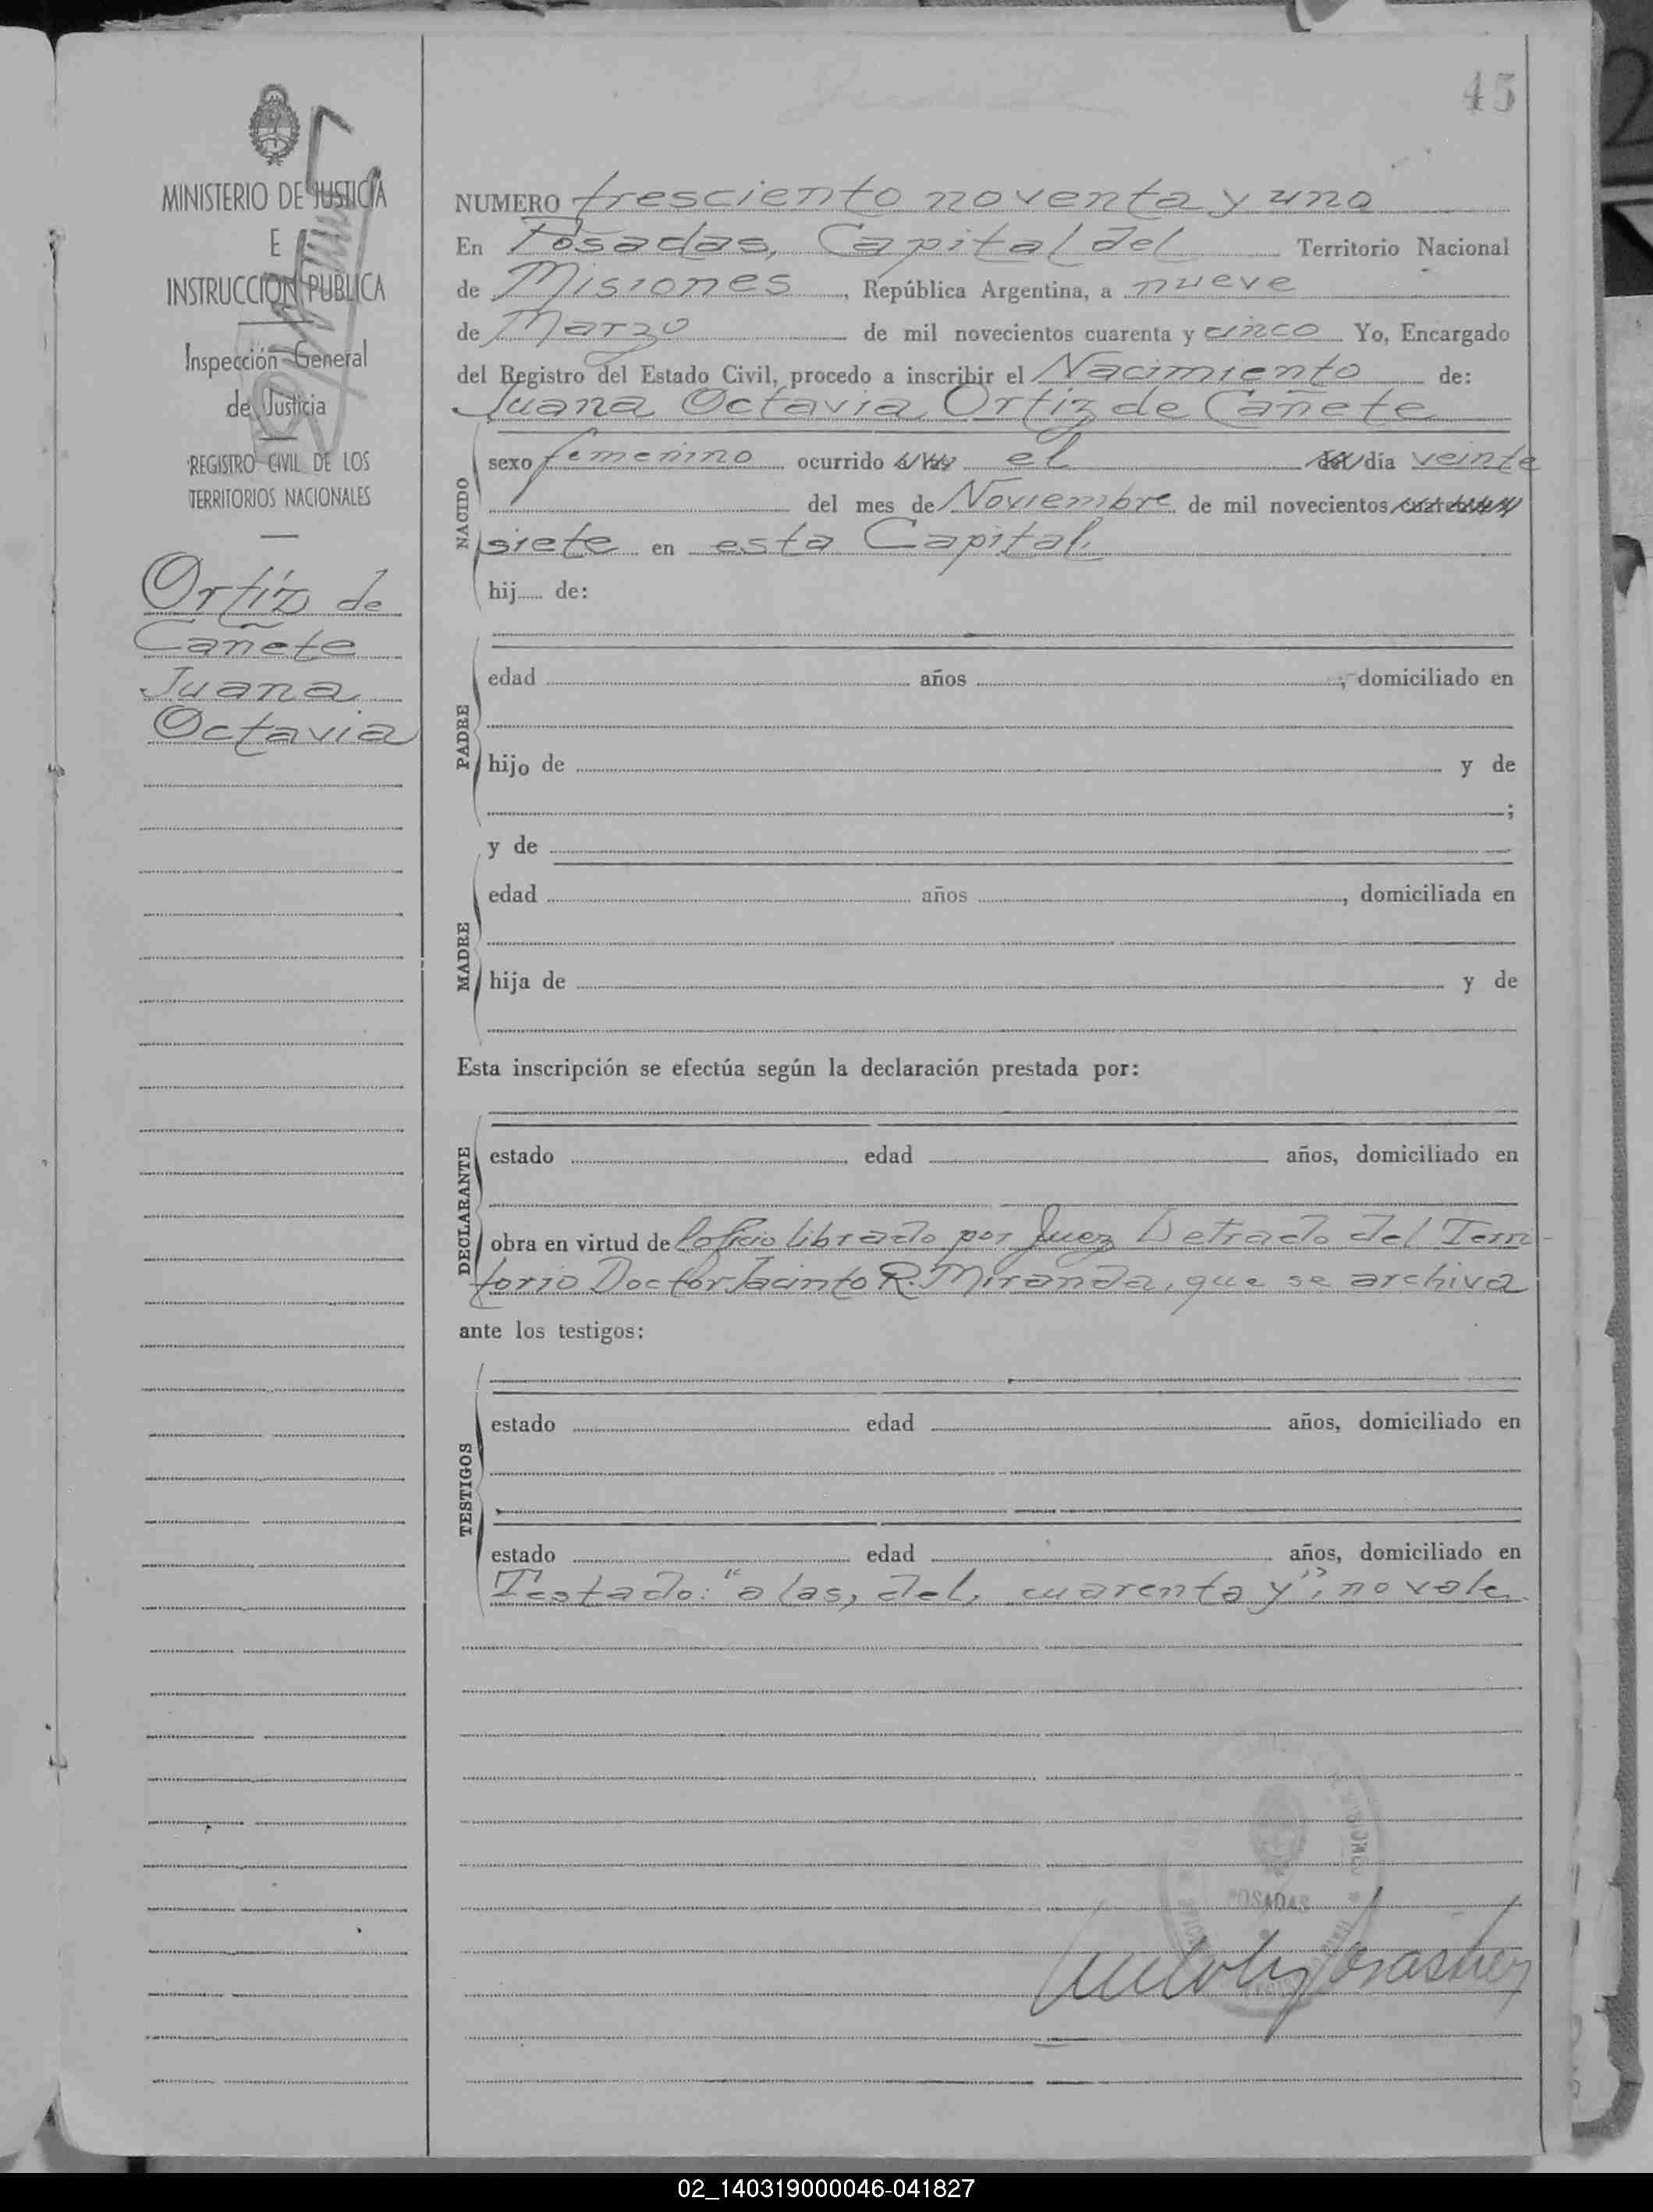 45
MINISTERIO DE JUSTICIA
E
INSTRUCCION PUBLICA
Inspección General
de Justicia
REGISTRO CIVIL DE LOS
TERRITORIOS NACIONALES
Ortíz de
Cañete
Juana
Octavia
NUMERO tresciento noventa y uno
En Posadas, Capital del Territorio Nacional
de Misiones, República Argentina, a nueve
de Marzo de mil novecientos cuarenta y cinco Yo, Encargado
del Registro del Estado Civil, procedo a inscribir el Nacimiento de:
Juana Octavia Ortiz de Cañete
NACIDO
sexo femenino ocurrido a las el del día veinte
del mes de Noviembre de mil novecientos cuarenta y
siete en esta Capital.
hij..... de:
PADRE
edad años ; domiciliado en
hijo de y de
;
y de
MADRE
edad años , domiciliada en
hija de y de
Esta inscripción se efectúa según la declaración prestada por:
DECLARANTE
estado edad años, domiciliado en
obra en virtud de oficio librado por Juez Letrado del Terri-
torio Doctor Jacinto R. Miranda, que se archiva
ante los testigos:
TESTIGOS
estado edad años, domiciliado en
estado edad años, domiciliado en
Testado: "a las, del, cuarenta y"; no vale.
POSADAS
02_140319000046-041827